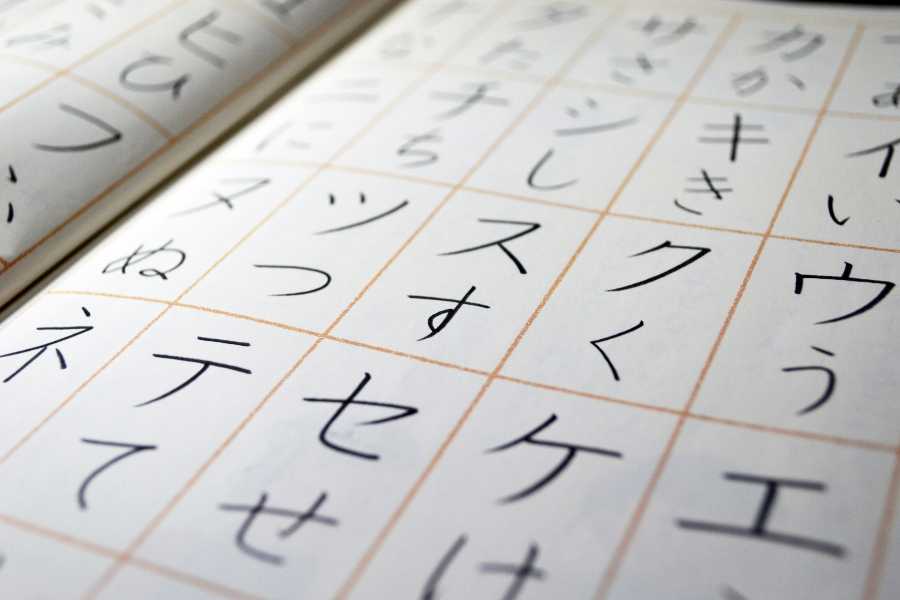 あ イ い ウ う エ
カ か キ き ク く ケ け
サ さ シ し ス す セ せ
タ た チ ち ツ つ テ て
な ニ に ヌ ぬ ネ
ヒ ひ フ